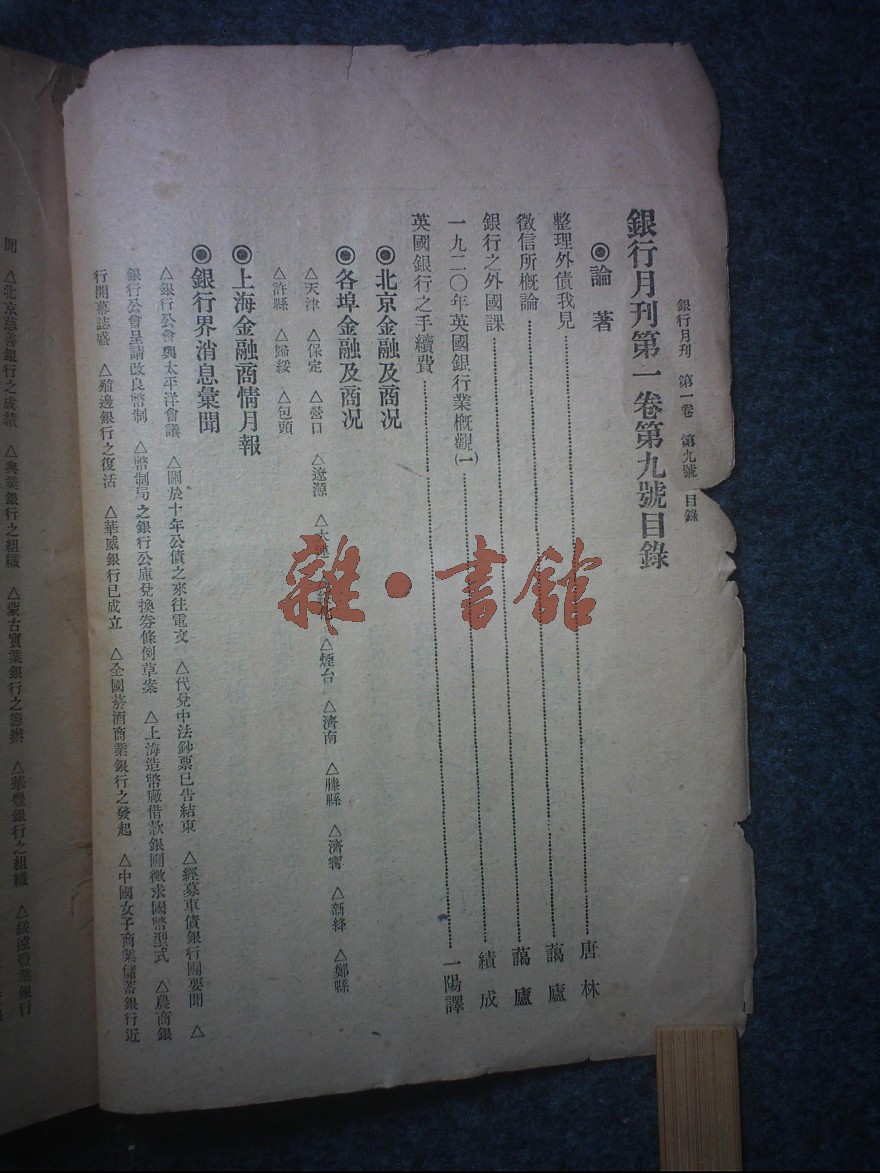 銀行月刊 第一卷 第九號 目錄
銀行月刊第一卷第九號目錄
◎論著
整理外債我見 唐林
徵信所概論 藹廬
銀行之外國課 藹廬
一九二〇年英國銀行業概觀(一) 績成
英國銀行之手續費 一陽譯
◎北京金融及商況
◎各埠金融及商況
△天津 △保定 △營口 △遼源 △大連 △煙台 △濟南 △滕縣 △濟寧 △新絳 △鄭縣
△許縣 △歸綏 △包頭
◎上海金融商情月報
◎銀行界消息彙聞
△銀行公會與太平洋會議 △關於十年公債之來往電文 △代兌中法鈔票已告結束 △經募車債銀行團要聞 △
銀行公會呈請改良幣制 △幣制局之銀行公庫兌換券條例草案 △上海造幣廠借款銀團徵求國幣型式 △農商銀
行開幕誌盛 △殖邊銀行之復活 △華威銀行已成立 △全國菸酒商業銀行之發起 △中國女子商業儲蓄銀行近
聞 △北京慈善銀行之成績 △興業銀行之組織 △蒙古實業銀行之籌辦 △華豐銀行之組織 △綏遠豐業銀行
雜·書館